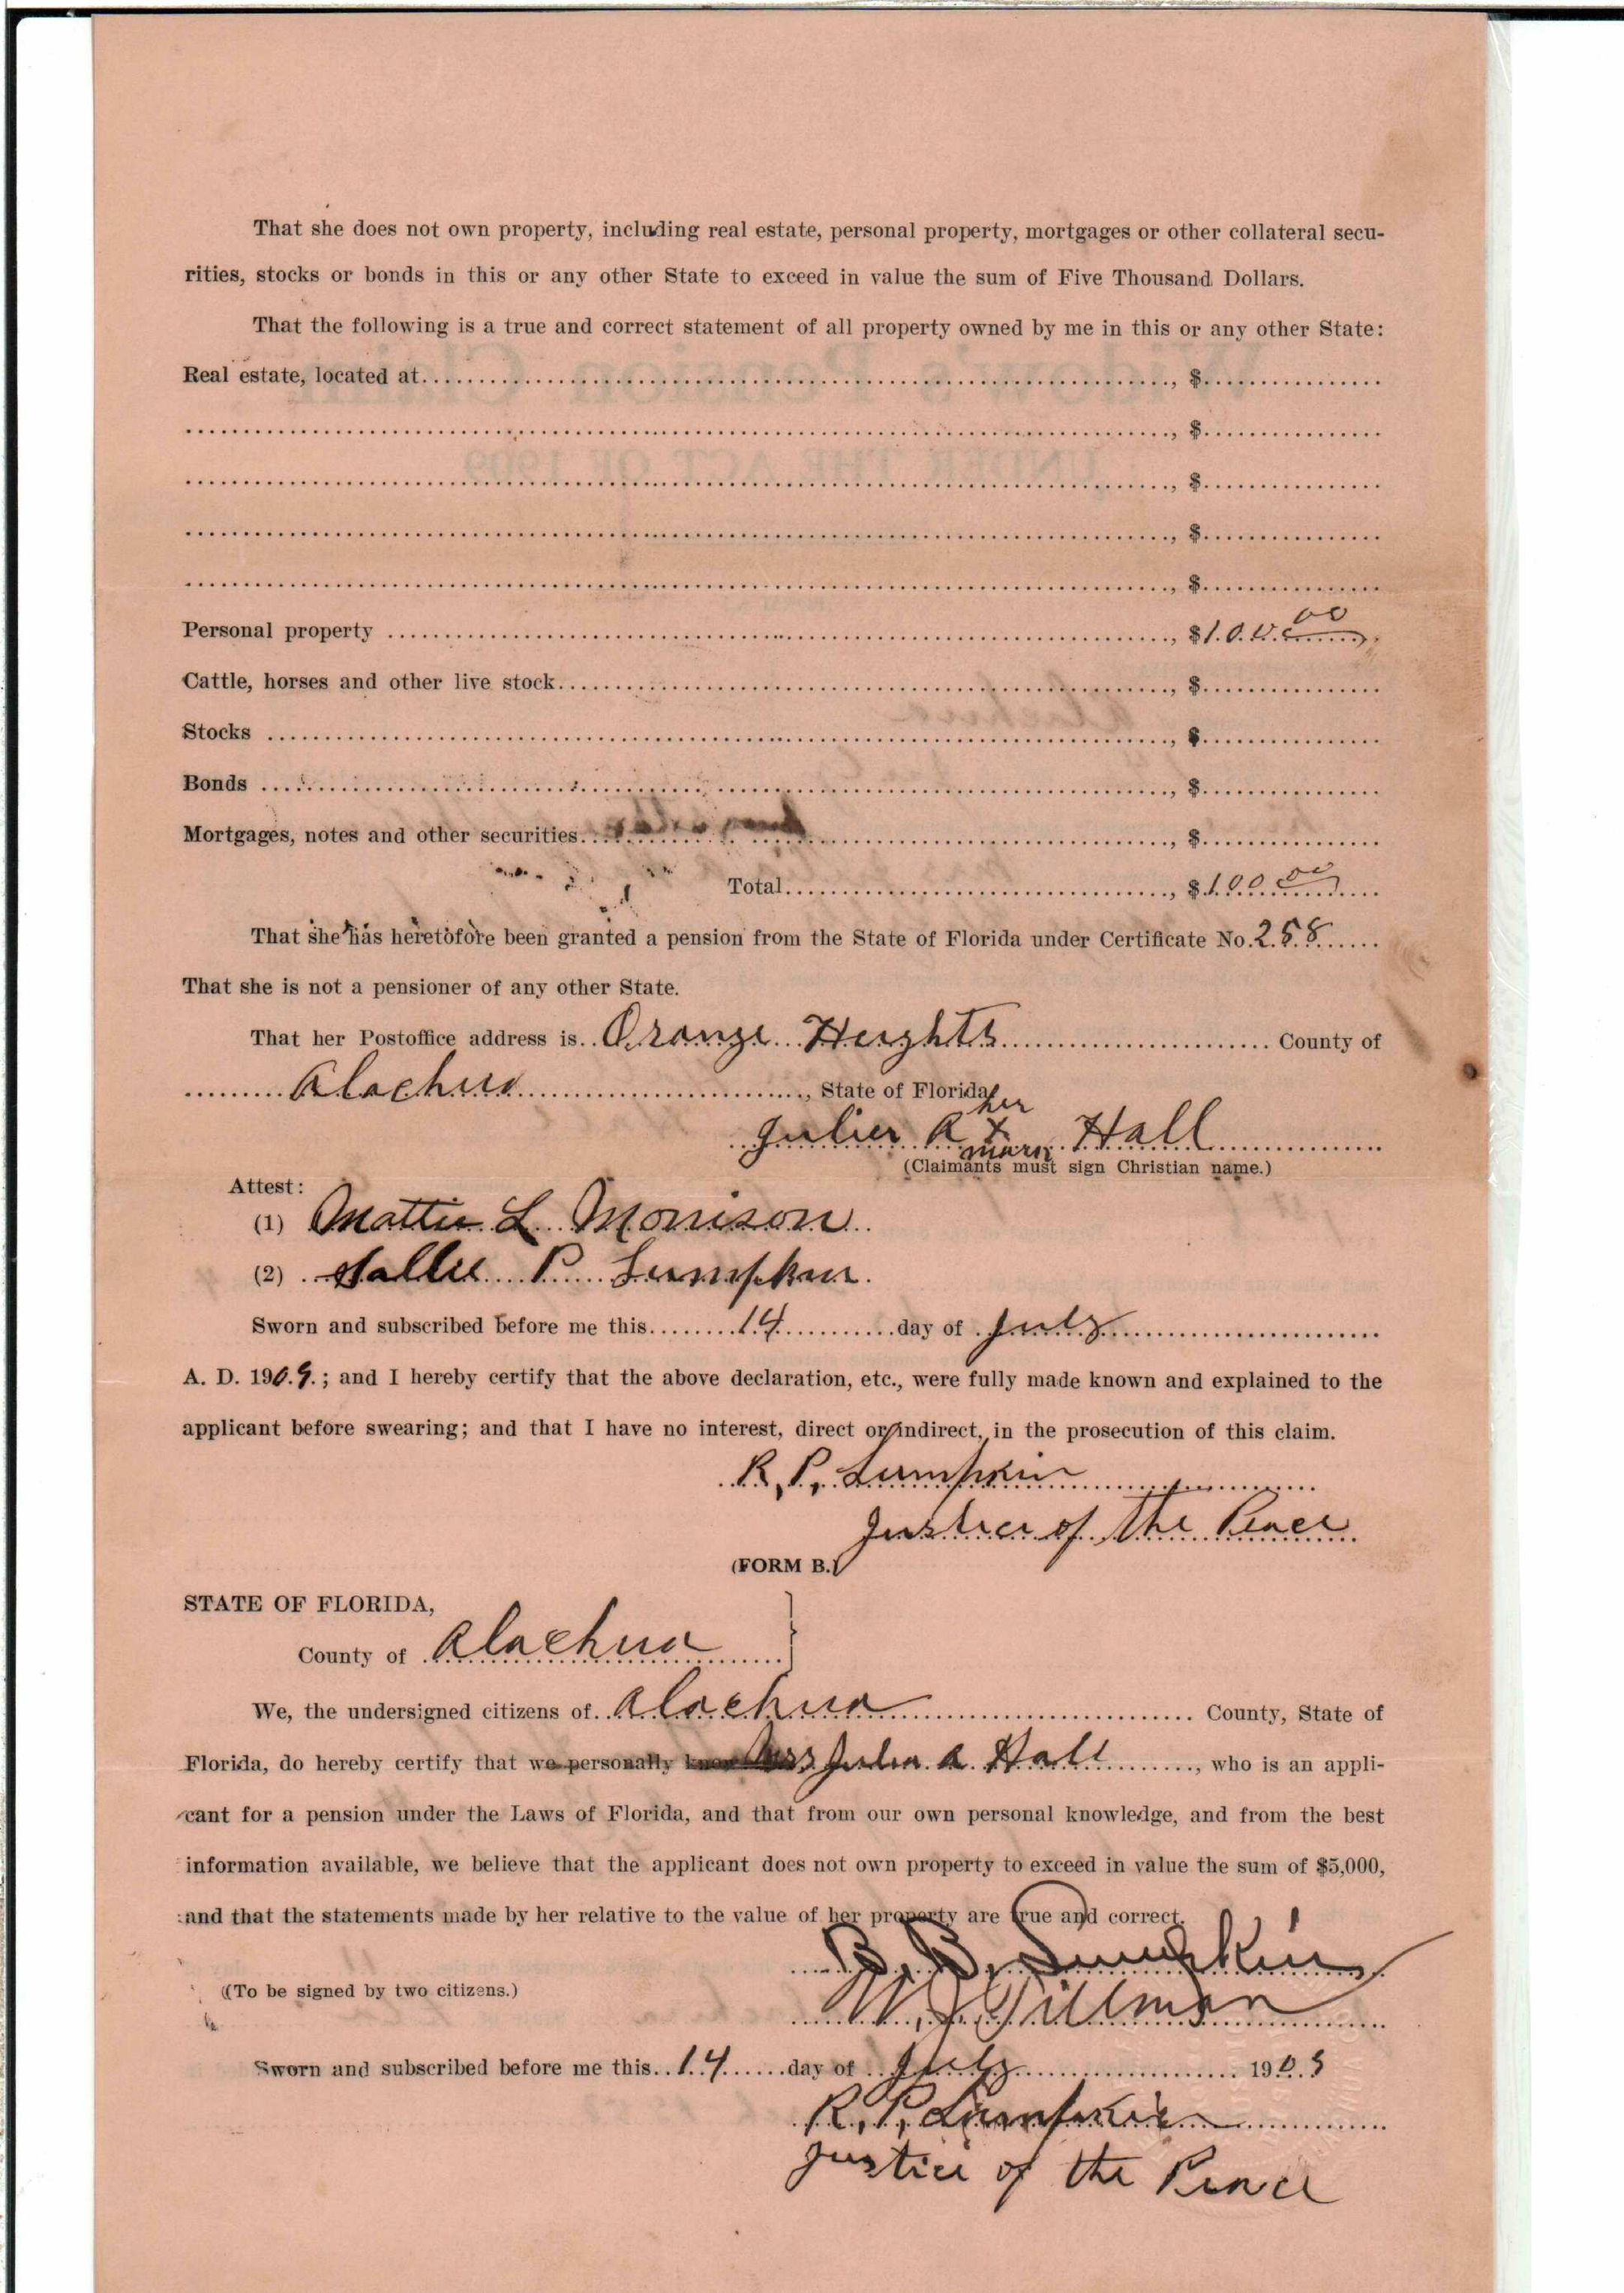 That she does not own property, including real estate, personal property, mortgages or other collateral secu-
rities, stocks or bonds in this or any other State to exceed in value the sum of Five Thousand Dollars.
That the following is a true and correct statement of all property owned by me in this or any other State:
Real estate, located at, $
, $
, $
, $
, $
Personal property, $100.00
Cattle, horses and other live stock, $
Stocks, $
Bonds, $
Mortgages, notes and other securities, $
Total, $100.00
That she has heretofore been granted a pension from the State of Florida under Certificate No. 258
That she is not a pensioner of any other State.
That her Postoffice address is Orange Heights County of
Alachua, State of Florida
her
Julier A x Hall
mark
(Claimants must sign Christian name.)
Attest:
(1) Mattie L Morrison
(2) Sallie P Lumpkin
Sworn and subscribed before me this 14 day of July
A. D. 1909; and I hereby certify that the above declaration, etc., were fully made known and explained to the
applicant before swearing; and that I have no interest, direct or indirect, in the prosecution of this claim.
R. P. Lumpkin
Justice of the Peace
(FORM B.)
STATE OF FLORIDA,
County of Alachua
We, the undersigned citizens of Alachua County, State of
Florida, do hereby certify that we personally know Mrs Julia A Hall, who is an appli-
cant for a pension under the Laws of Florida, and that from our own personal knowledge, and from the best
information available, we believe that the applicant does not own property to exceed in value the sum of $5,000,
and that the statements made by her relative to the value of her property are true and correct.
B. B. Lumpkin
(To be signed by two citizens.)
W. J. Tillman
Sworn and subscribed before me this 14 day of July 1909
R. P. Lumpkin
Justice of the Peace